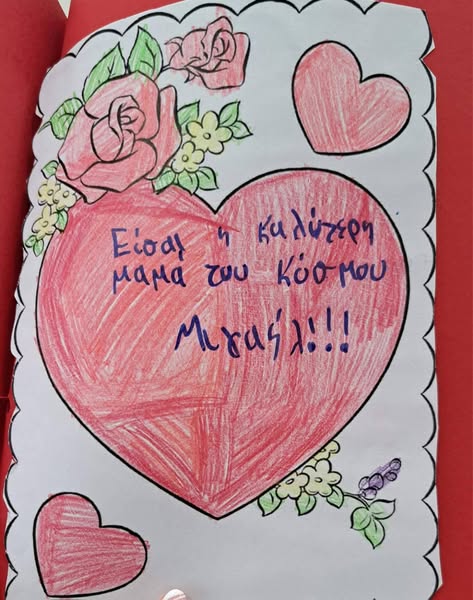 Είσαι η καλύτερη
μαμα του κόσμου
Μιχαήλ!!!